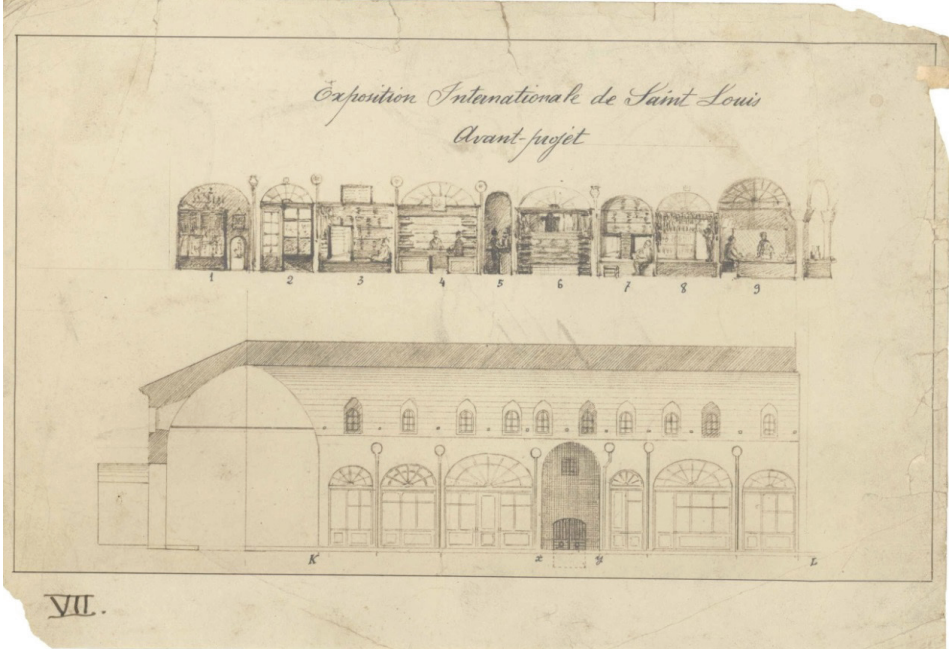 Exposition Internationale de Saint Louis
Avant-projèt
1 2 3 4 5 6 7 8 9
K z y L
VII.